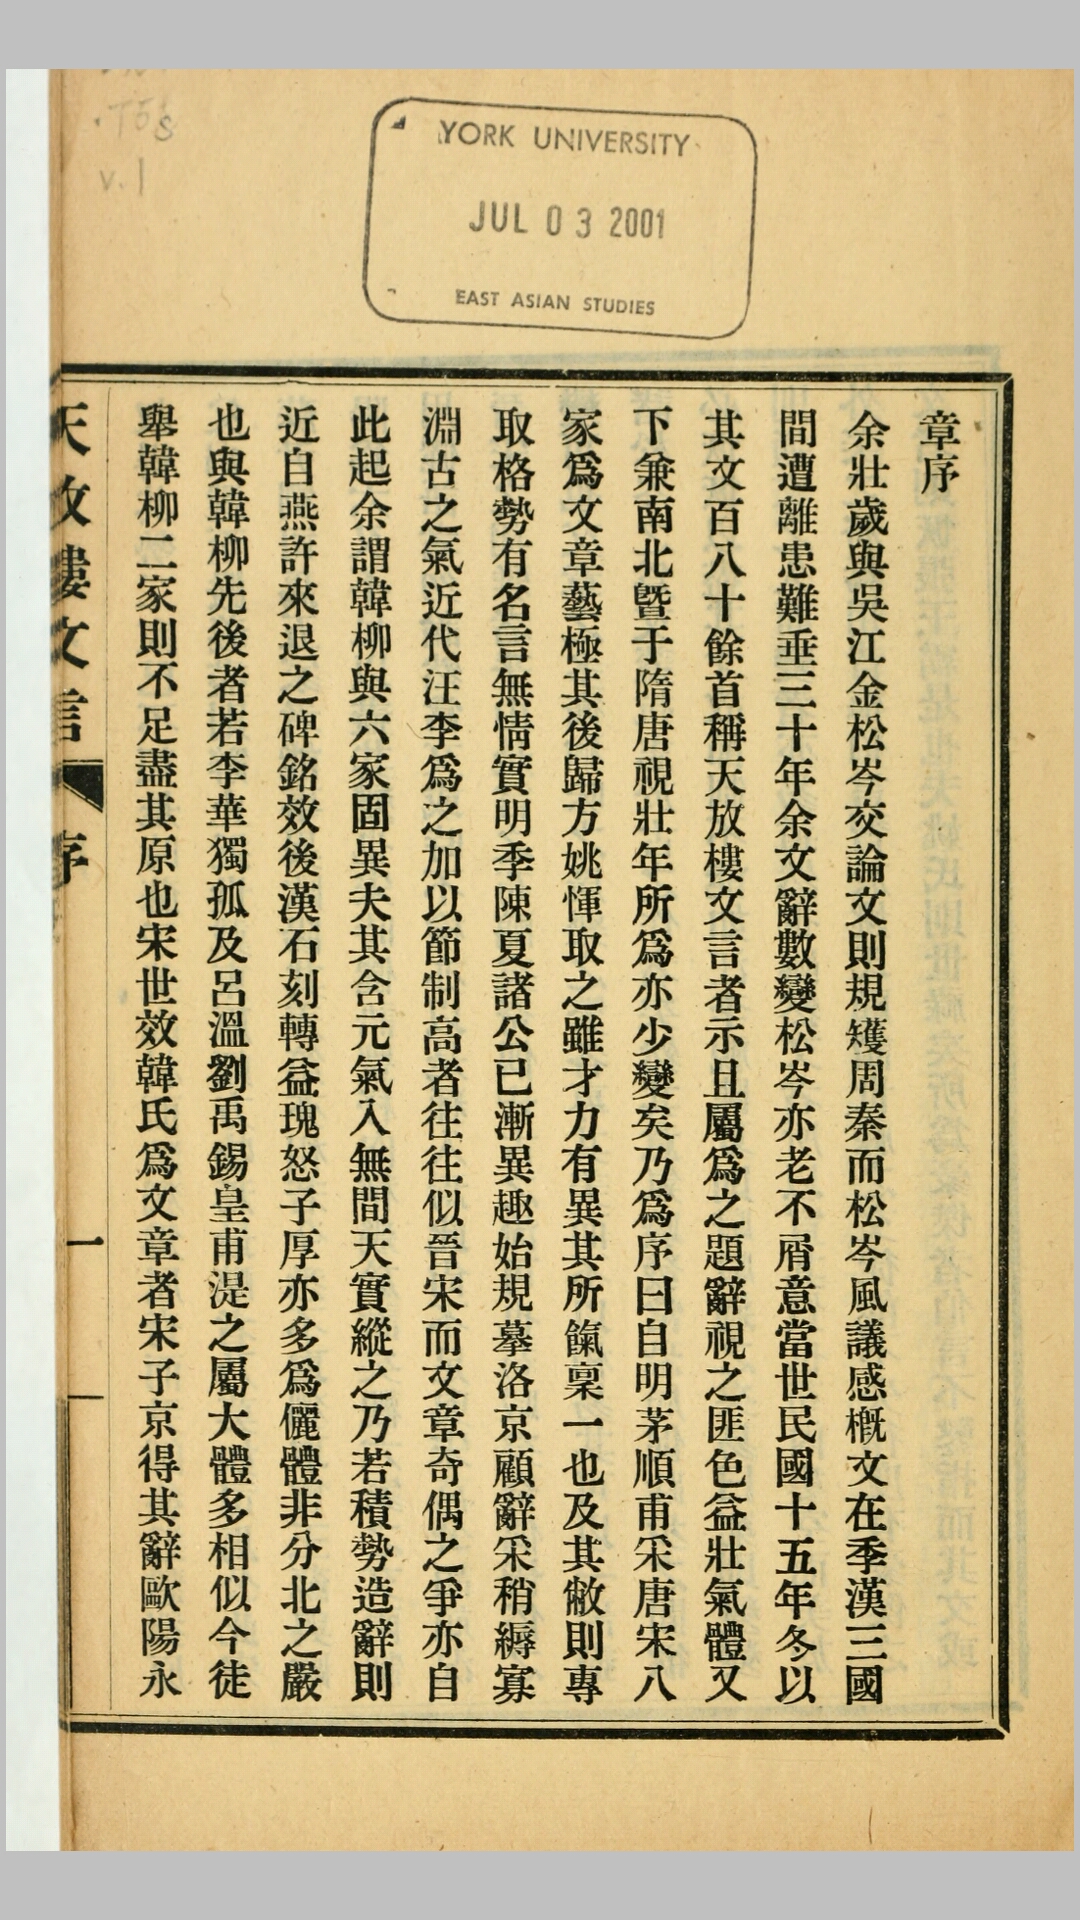 .T5s
v.1
YORK UNIVERSITY
JUL 03 2001
EAST ASIAN STUDIES
章序
余壯歲與吳江金松岑交論文則規矱周秦而松岑風議感槪文在季漢三國
間遭離患難垂三十年余文辭數變松岑亦老不屑意當世民國十五年冬以
其文百八十餘首稱天放樓文言者示且屬爲之題辭視之匪色益壯氣體又
下兼南北曁于隋唐視壯年所爲亦少變矣乃爲序曰自明茅順甫采唐宋八
家爲文章藝極其後歸方姚惲取之雖才力有異其所餼稟一也及其敝則專
取格勢有名言無情實明季陳夏諸公已漸異趣始規摹洛京顧辭采稍縟寡
淵古之氣近代汪李爲之加以節制高者往往似晉宋而文章奇偶之爭亦自
此起余謂韓柳與六家固異夫其含元氣入無間天實縱之乃若積勢造辭則
近自燕許來退之碑銘效後漢石刻轉益瑰怒子厚亦多爲儷體非分北之嚴
也與韓柳先後者若李華獨孤及呂溫劉禹錫皇甫湜之屬大體多相似今徒
舉韓柳二家則不足盡其原也宋世效韓氏爲文章者宋子京得其辭歐陽永
天放樓文言 序 一